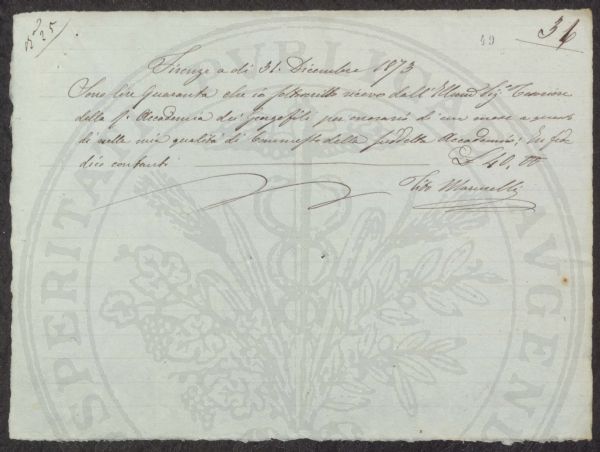 N° 25
49
31
Firenze a di 31. Dicembre 1873
Sono lire Quaranta che io sottoscritto ricevo dall' Illmo Sig.e Cassiere
della R.e Accademia dei Georgofili per onorario di un mese a questo
dì nella mia qualità di Commesso della suddetta Accademia; In fia
dico contanti £ 40,00
Tito Marucelli
PROSPERITATI PVBLICAE AVGENDAE